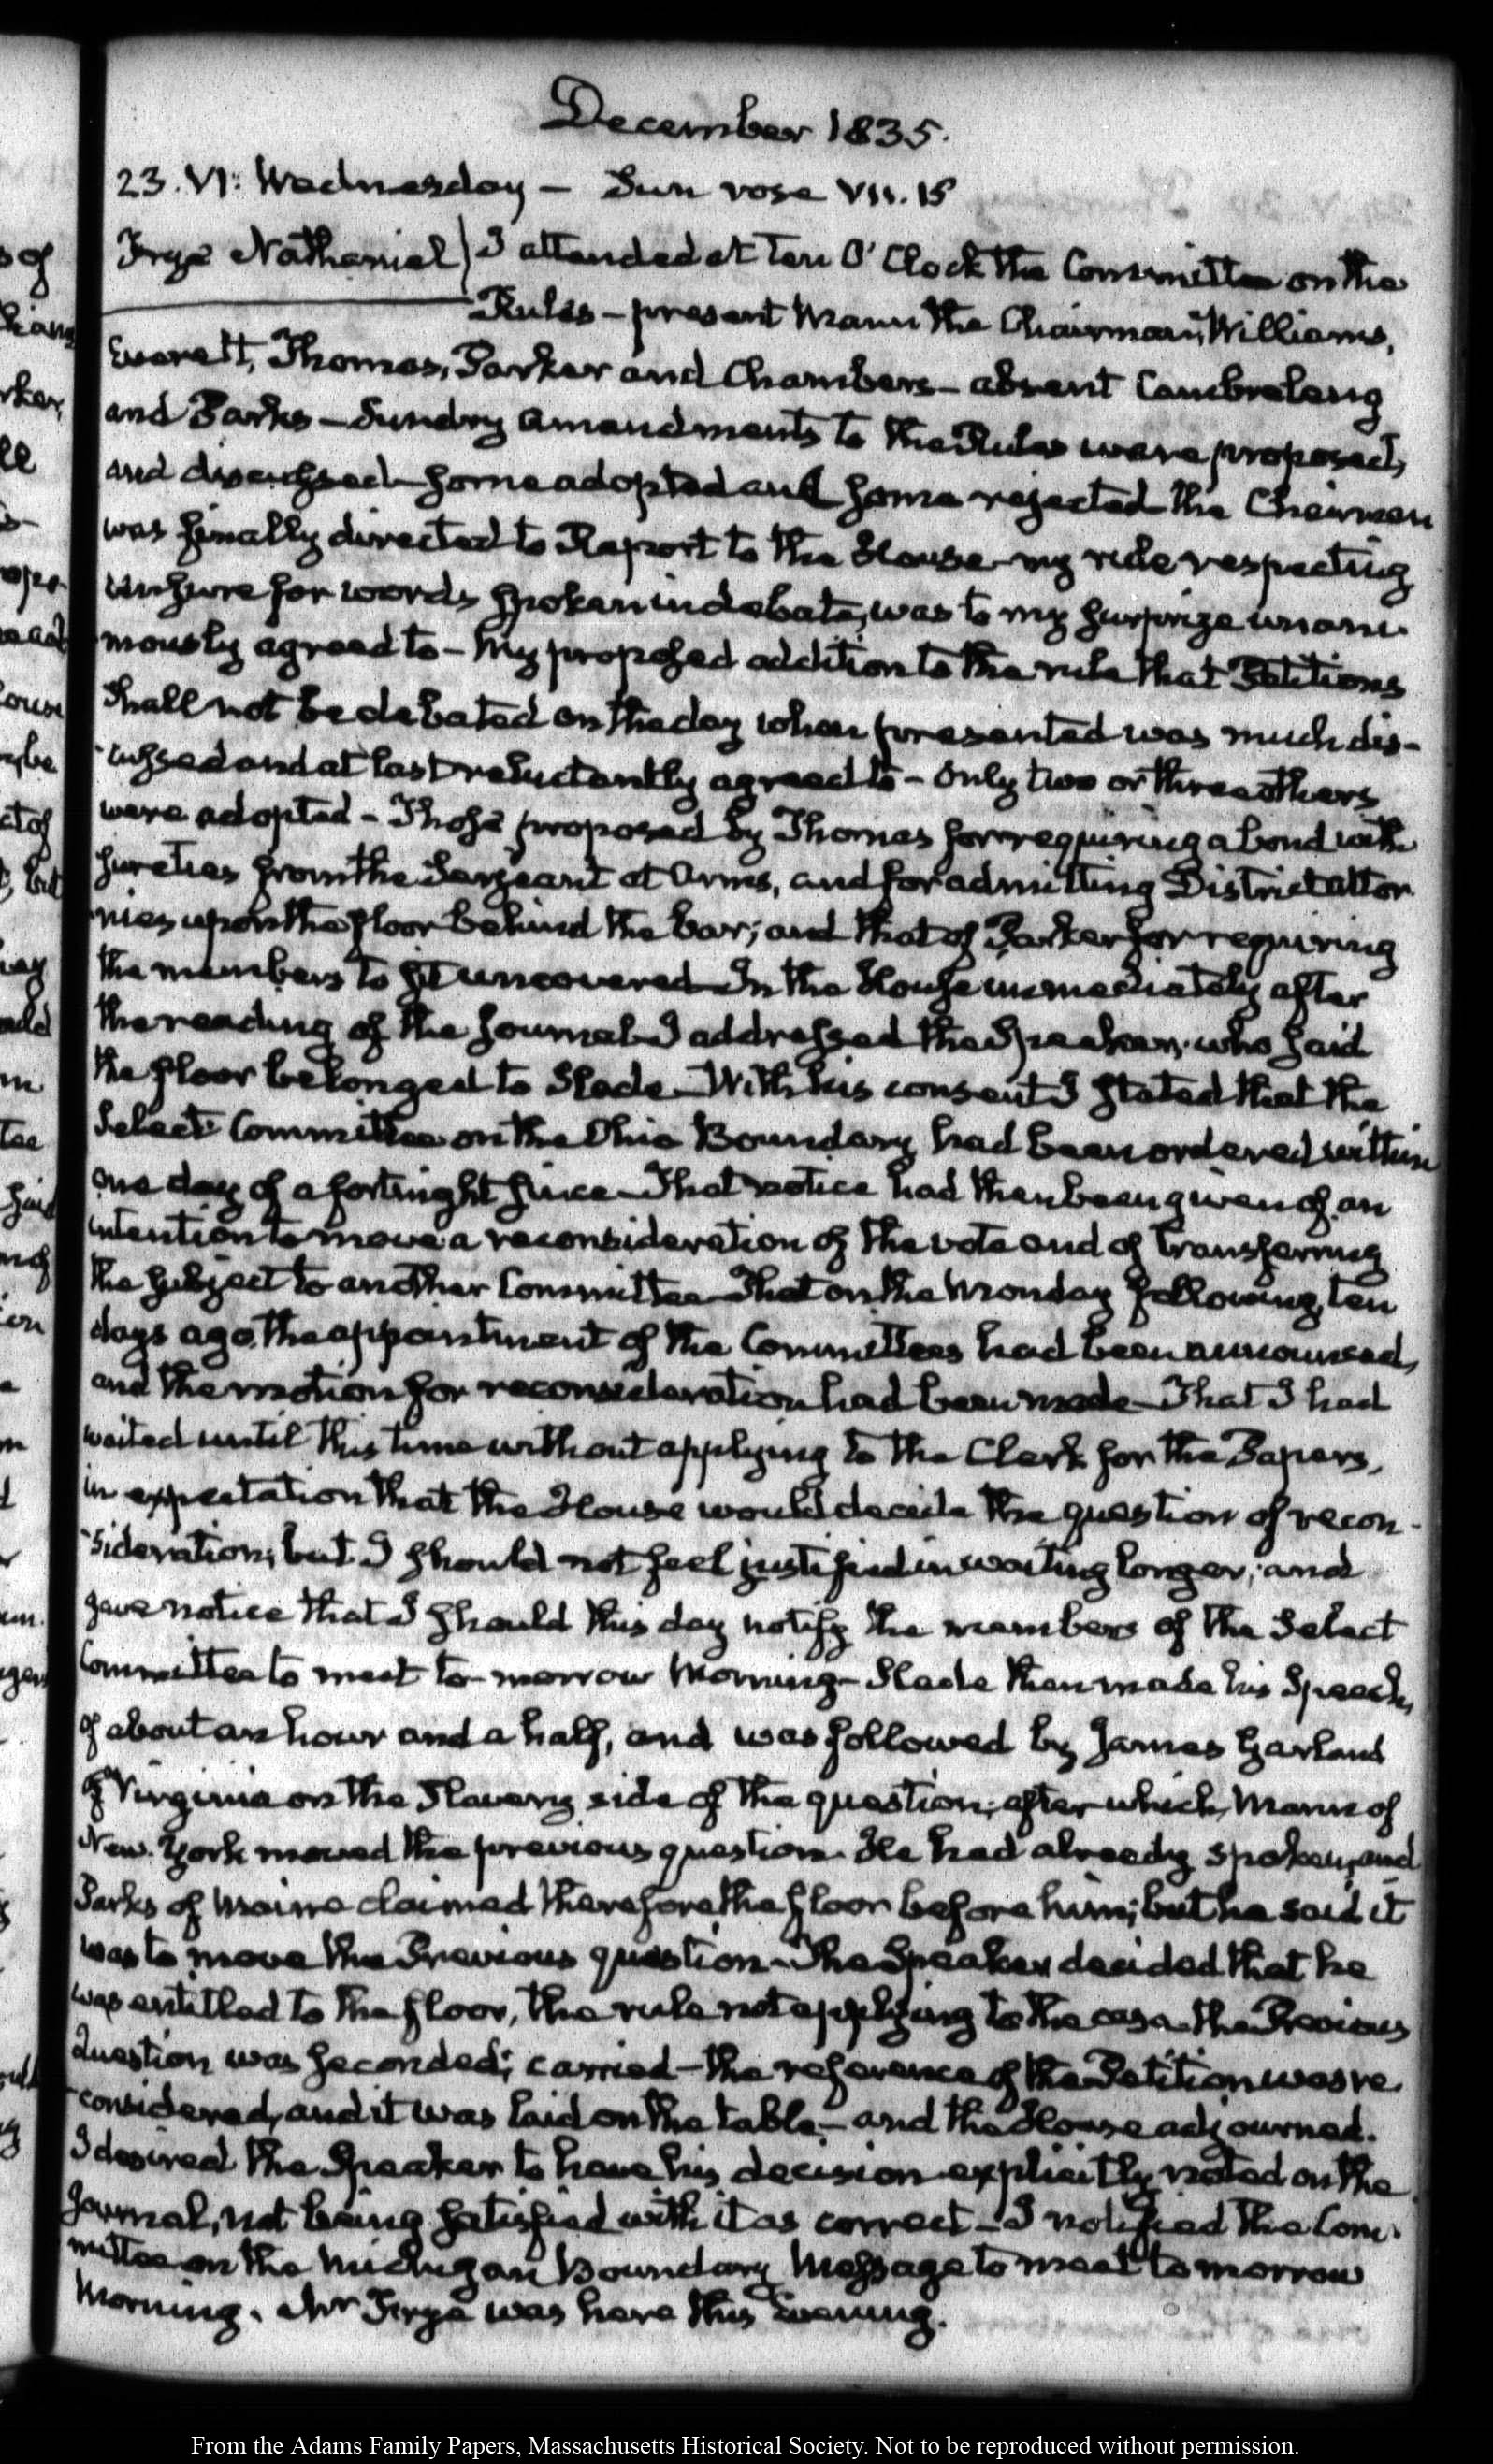 December 1835.
23. VI: Wednesday – Sun rose VII. 15
Frye Nathaniel) I attended at ten O'Clock the Committee on the
Rules – present Mann the Chairman, Williams,
Everett, Thomas, Parker and Chambers – absent Cambreleng
and Parks – Sundry amendments to the Rules were proposed,
and discussed – some adopted and some rejected – the Chairman
was finally directed to Report to the House – my rule respecting
censure for words spoken in debate, was to my surprize unani-
mously agreed to – My proposed addition to the rule that Petitions
shall not be debated on the day when presented was much dis-
-cussed and at last reluctantly agreed to – only two or three others
were adopted – Those proposed by Thomas for requiring a bond with
sureties from the Sergeant at Arms, and for admitting District attor
nies upon the floor behind the bar; and that of Parker for requiring
the members to sit uncovered – In the House immediately after
the reading of the Journal I addressed the Speaker, who said
the floor belonged to Slade – With his consent I stated that the
Select Committee on the Ohio Boundary had been ordered within
one day of a fortnight since – That notice had then been given of an
intention to move a reconsideration of the vote and of transferring
the subject to another Committee – That on the Monday following, ten
days ago, the appointment of the Committees had been announced,
and the motion for reconsideration had been made – That I had
waited until this time without applying to the Clerk for the Papers,
in expectation that the House would decide the question of recon-
-sideration; but I should not feel justified in waiting longer; and
gave notice that I should this day notify the members of the Select
Committee to meet to-morrow Morning – Slade then made his Speech,
of about an hour and a half, and was followed by James Garland
of Virginia on the Slavery side of the question; after which, Mann of
New-York moved the previous question. He had already spoken, and
Parks of Maine claimed therefore the floor before him; but he said it
was to move the Previous question – The Speaker decided that he
was entitled to the floor, the rule not applying to the case – the Previous
Question was seconded; carried – the reference of the Petition was re-
-considered, and it was laid on the table – and the House adjourned.
I desired the Speaker to have his decision explicitly noted on the
Journal, not being satisfied with it as correct – I notified the Com-
mittee on the Michigan Boundary Message to meet to morrow
Morning. Mr Frye was here this Evening.
From the Adams Family Papers, Massachusetts Historical Society. Not to be reproduced without permission.